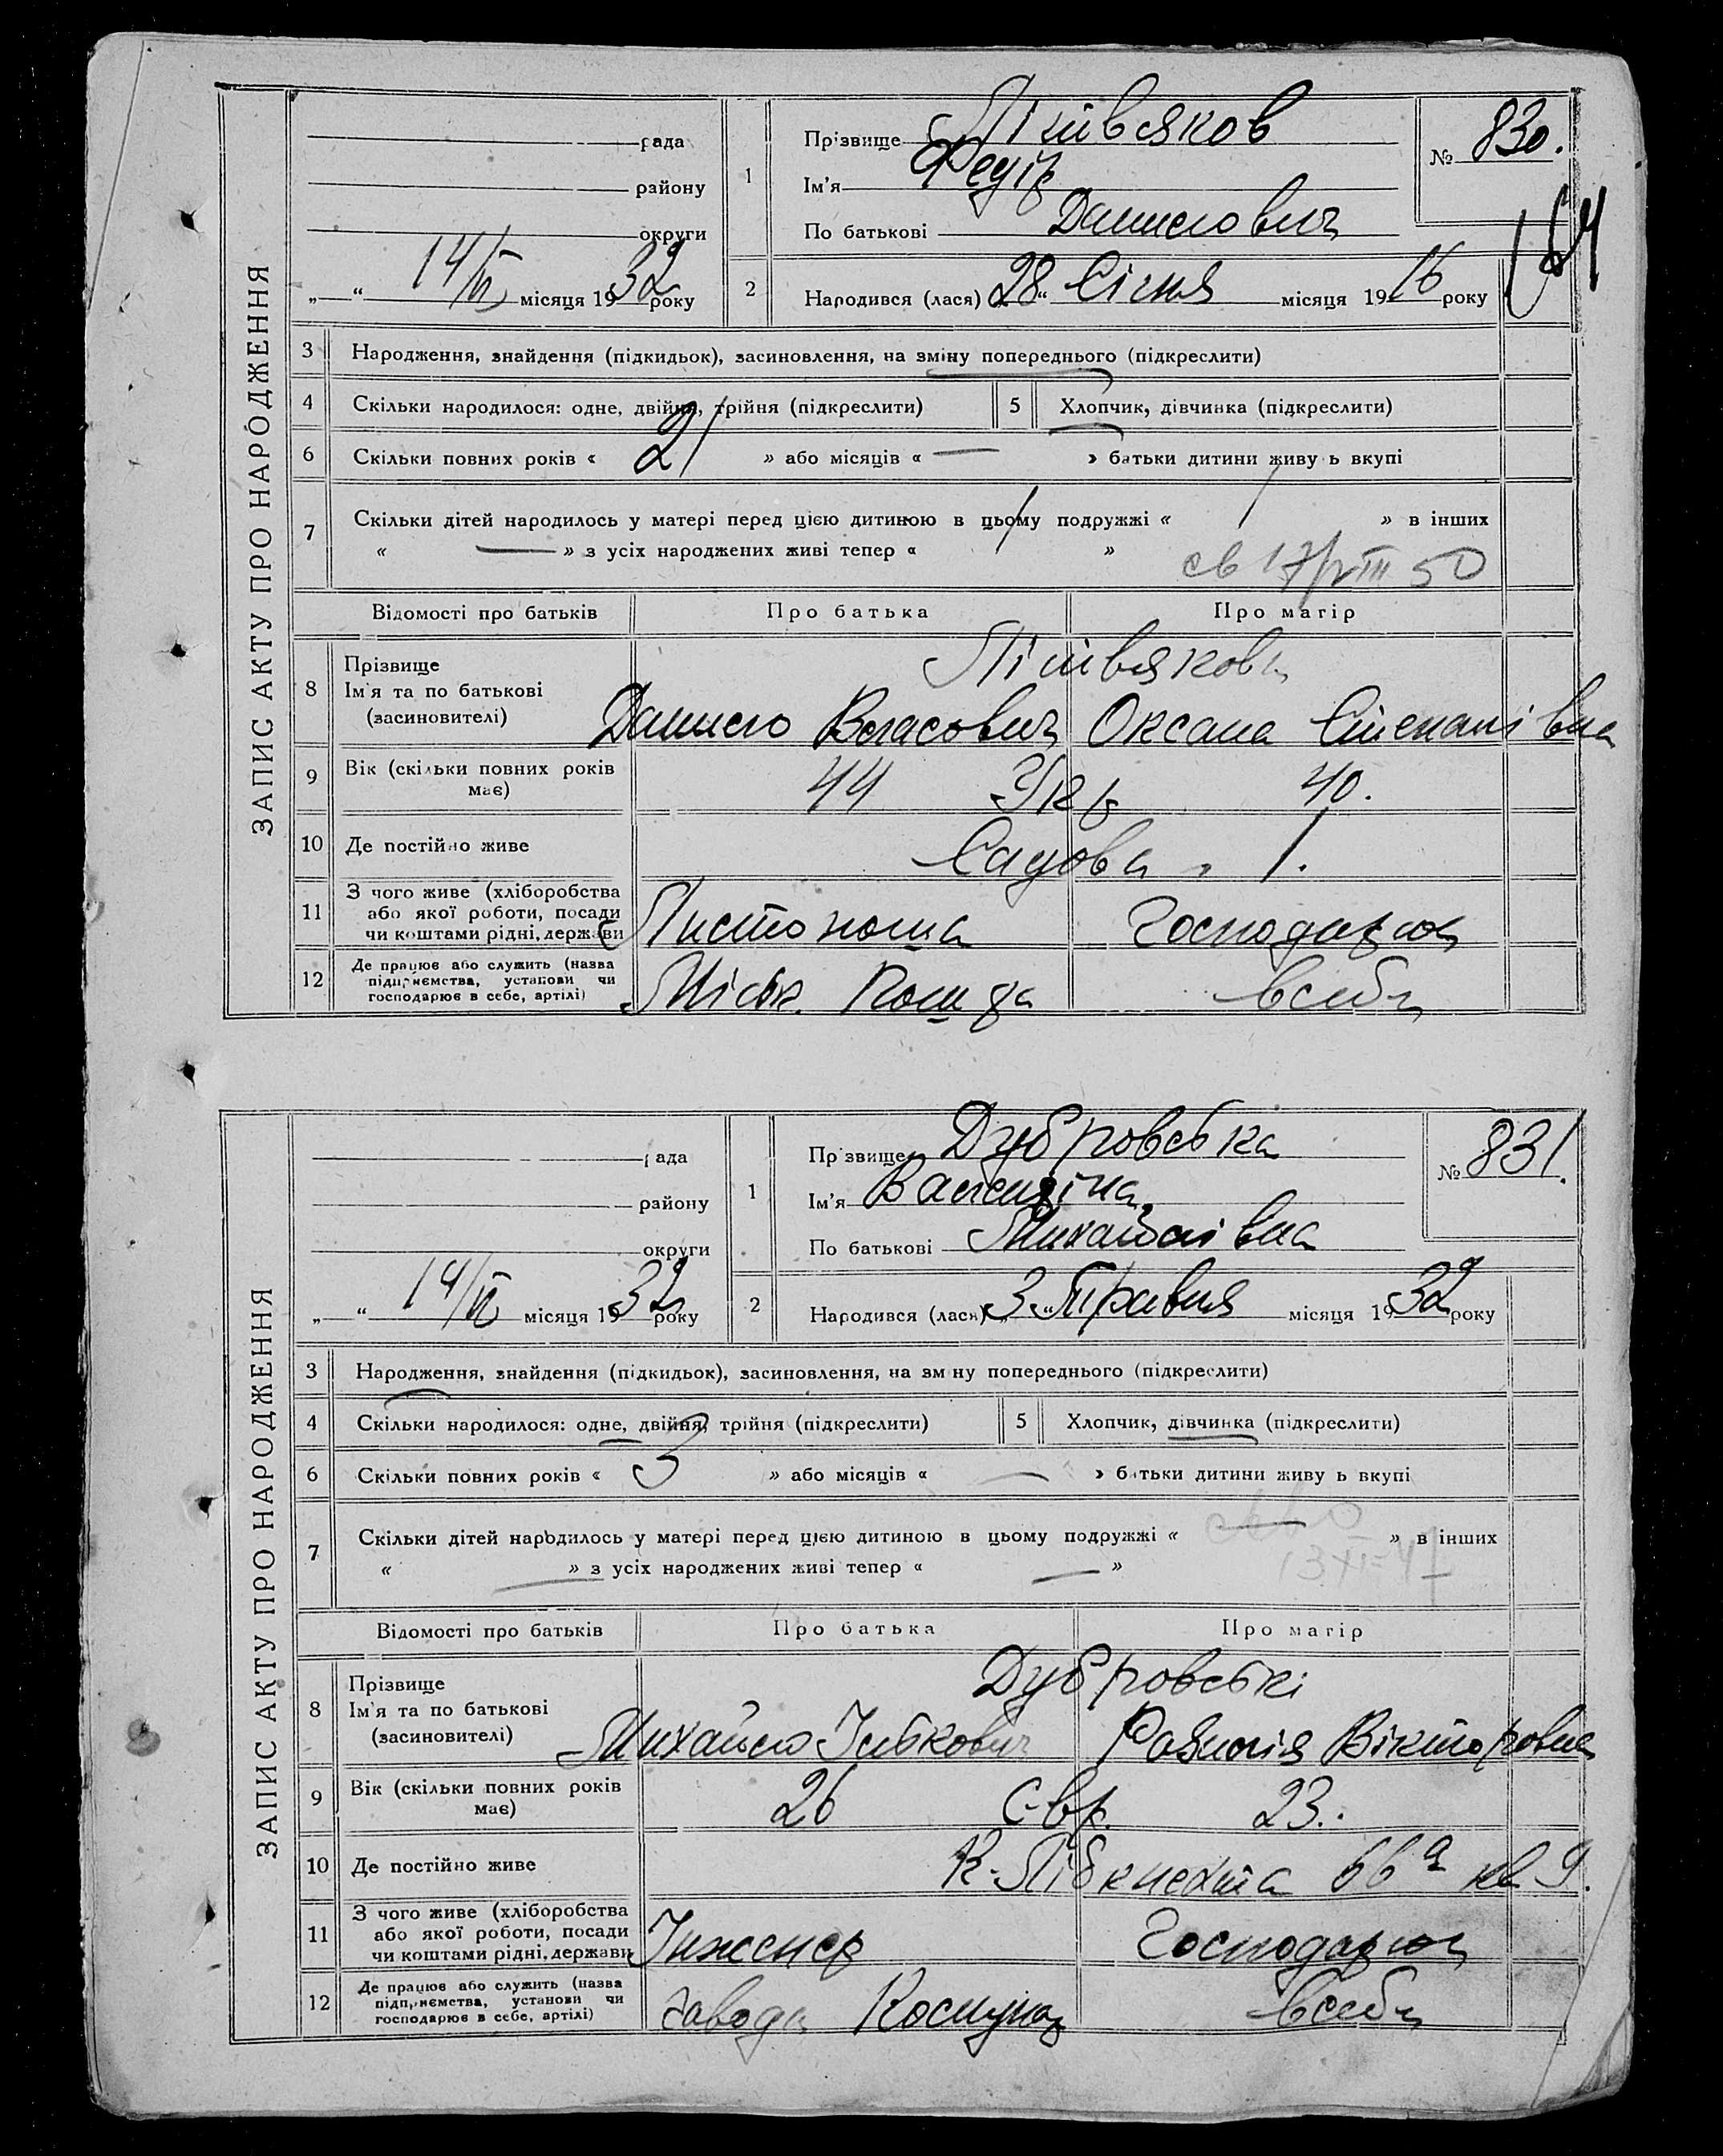 ЗАПИС АКТУ ПРО НАРОДЖЕННЯ
рада
району
округи
„ “ 14/VI місяця 1932 року
1
Прізвище
Ім'я Федір
По батькові Данилович
№ 830.
164
2
Народився (лася) 28 “ Січня місяця 1916 року
3 Народження, знайдення (підкидьок), засиновлення, на зміну попереднього (підкреслити)
4 Скільки народилося: одне, двійня, трійня (підкреслити)
5 Хлопчик, дівчинка (підкреслити)
6 Скільки повних років « 21 » або місяців « — » батьки дитини живуть вкупі
7 Скільки дітей народилось у матері перед цією дитиною в цьому подружжі « 1 » в інших
« — » з усіх народжених живі тепер « 1 »
св 17/VIII 50
Відомості про батьків Про батька Про матір
8 Прізвище
Ім'я та по батькові
(засиновителі)
Данило Власович Оксана Степанівна
9 Вік (скільки повних років має) 44 Укр 40.
10 Де постійно живе Садова 1.
11 З чого живе (хліборобства або якої роботи, посади чи коштами рідні, держави Листоноша Господарює
12 Де працює або служить (назва підприємства, установи чи господарює в себе, артілі) Міськ. Пошта всебе
ЗАПИС АКТУ ПРО НАРОДЖЕННЯ
рада
району
округи
„ “ 14/VI місяця 1932 року
1
Прізвище Дубровська
Ім'я Валентіна
По батькові Михайлівна
№ 831.
2
Народився (лася) 3 „ Травня місяця 1932 року
3 Народження, знайдення (підкидьок), засиновлення, на зміну попереднього (підкреслити)
4 Скільки народилося: одне, двійня, трійня (підкреслити)
5 Хлопчик, дівчинка (підкреслити)
6 Скільки повних років « 3 » або місяців « — » батьки дитини живуть вкупі
7 Скільки дітей народилось у матері перед цією дитиною в цьому подружжі « — » в інших
« — » з усіх народжених живі тепер « — »
13 XI-47
Відомості про батьків Про батька Про матір
8 Прізвище
Ім'я та по батькові
(засиновителі)
Дубровські
Михайло Іцькович Розалія Вікторовна
9 Вік (скільки повних років має) 26 Євр. 23.
10 Де постійно живе К-Лібкнехта 66а кв 9.
11 З чого живе (хліборобства або якої роботи, посади чи коштами рідні, держави Інженер Господарює
12 Де працює або служить (назва підприємства, установи чи господарює в себе, артілі) завода Комунар всебе